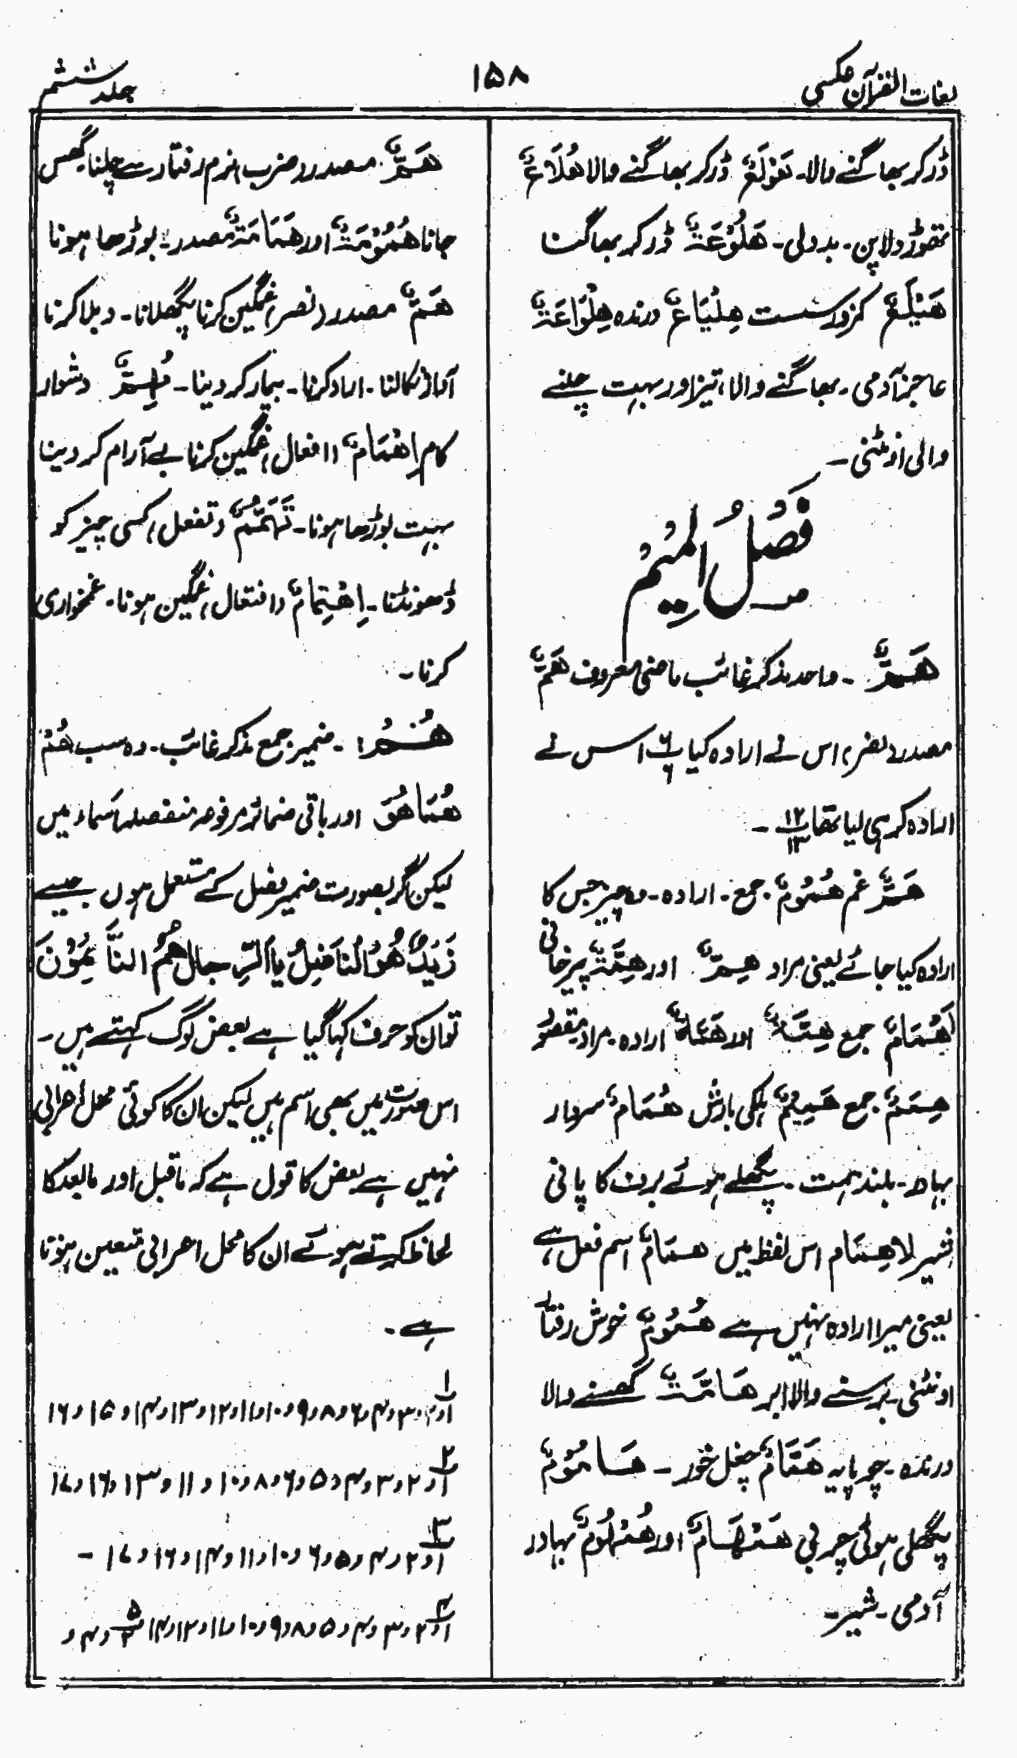 لغات القرآن عکسی
۱۵۸
جلد ششم
ڈر کر بھاگنے والا۔ هَوْلَعٌ ڈر کر بھاگنے والا هُلَاعٌ
تھوڑ دلا پن۔ بددلی۔ هَلُوْعَةٌ ڈر کر بھاگنا
هَيْلَعٌ کمزور سست هِلْيَاعٌ درندہ هِلْوَاعَةٌ
عاجز آدمی۔ بھاگنے والا، تیز اور بہت چلنے
والی اونٹنی۔
فَصْلُ الْمِيْمِ
هَمَّ۔ واحد مذکر غائب ماضی معروف هَمٌّ
مصدر (نصر) اس نے ارادہ کیا ۶/۶ اس نے
ارادہ کر ہی لیا تھا ۱۲/۱۳۔
هَمٌّ غم هُمُوْمٌ جمع۔ ارادہ۔ وہ چیز جس کا
ارادہ کیا جائے یعنی مراد هِمٌّ اور هِمَّةٌ پیر فانی
اَهْمَامٌ جمع هِمَّةٌ اور هَمَّةٌ ارادہ۔ مراد مقصود
هِمَمٌ جمع هَمِيْمٌ ہلکی بارش هُمَامٌ سردار
بہادر۔ بلند ہمت۔ پگھلے ہوئے برف کا پانی
شیر لا هَمَام اس لفظ میں همَامٌ اسم فعل ہے
یعنی میرا ارادہ نہیں ہے هُمُوْمٌ خوش رفتار
اونٹنی۔ برسنے والا ابر هَامَّةٌ گھسنے والا
درندہ۔ چوپایہ هَمَّامٌ چغل خور۔ هَامُوْمٌ
پگھلی ہوئی چربی هَمْهَامٌ اور هُمْهُوْمٌ بہادر
آدمی۔ شیر۔
هَمٌّ۔ مصدر (ضرب) نرم رفتار سے چلنا گھس
جانا هُمُوْمَةٌ اور هَمَامَةٌ مصدر۔ بوڑھا ہونا
هَمٌّ مصدر (نصر) غمگین کرنا پگھلانا۔ دبلا کرنا
آواز نکالنا۔ ارادہ کرنا۔ بیمار کر دینا۔ مُهِمٌّ دشوار
کام اِهْمَامٌ (افعال) غمگین کرنا بے آرام کر دینا
بہت بوڑھا ہونا۔ تَهَمُّمٌ (تفعل) کسی چیز کو
ڈھونڈنا۔ اِهْتِمَامٌ (افتعال) غمگین ہونا۔ غمخواری
کرنا۔
هُمْ: ۔ ضمیر جمع مذکر غائب۔ وہ سب هُمْ
هُمَا هُوَ اور باقی ضمائر مرفوعہ منفصلہ اسماء ہیں
لیکن اگر بصورت ضمیر فصل کے مستعمل ہوں جیسے
زَيْدٌ هُوَ الْفَاضِلُ یا اَلرِّجَالُ هُمُ النَّائِمُوْنَ
تو ان کو حرف کہا گیا ہے بعض لوگ کہتے ہیں۔
اس صورت میں بھی اسم ہیں لیکن ان کا کوئی محل اعرابی
نہیں ہے بعض کا قول ہے کہ ماقبل اور مابعد کا
لحاظ کرتے ہوئے ان کا محل اعرابی متعین ہوتا
ہے۔
۱/۱ و ۲ و ۳ و ۴ و ۶ و ۸ و ۹ و ۱۰ و ۱۱ و ۱۲ و ۱۳ و ۱۴ و ۱۵ و ۱۶
۲/۱ و ۲ و ۳ و ۴ و ۵ و ۶ و ۸ و ۱۰ و ۱۱ و ۱۳ و ۱۶ و ۱۷
۳/۱ و ۲ و ۴ و ۵ و ۶ و ۱۰ و ۱۱ و ۱۴ و ۱۶ و ۱۷۔
۴/۱ و ۲ و ۳ و ۴ و ۵ و ۸ و ۹ و ۱۰ و ۱۱ و ۱۲ و ۱۴ ۵/۲ و ۴ و